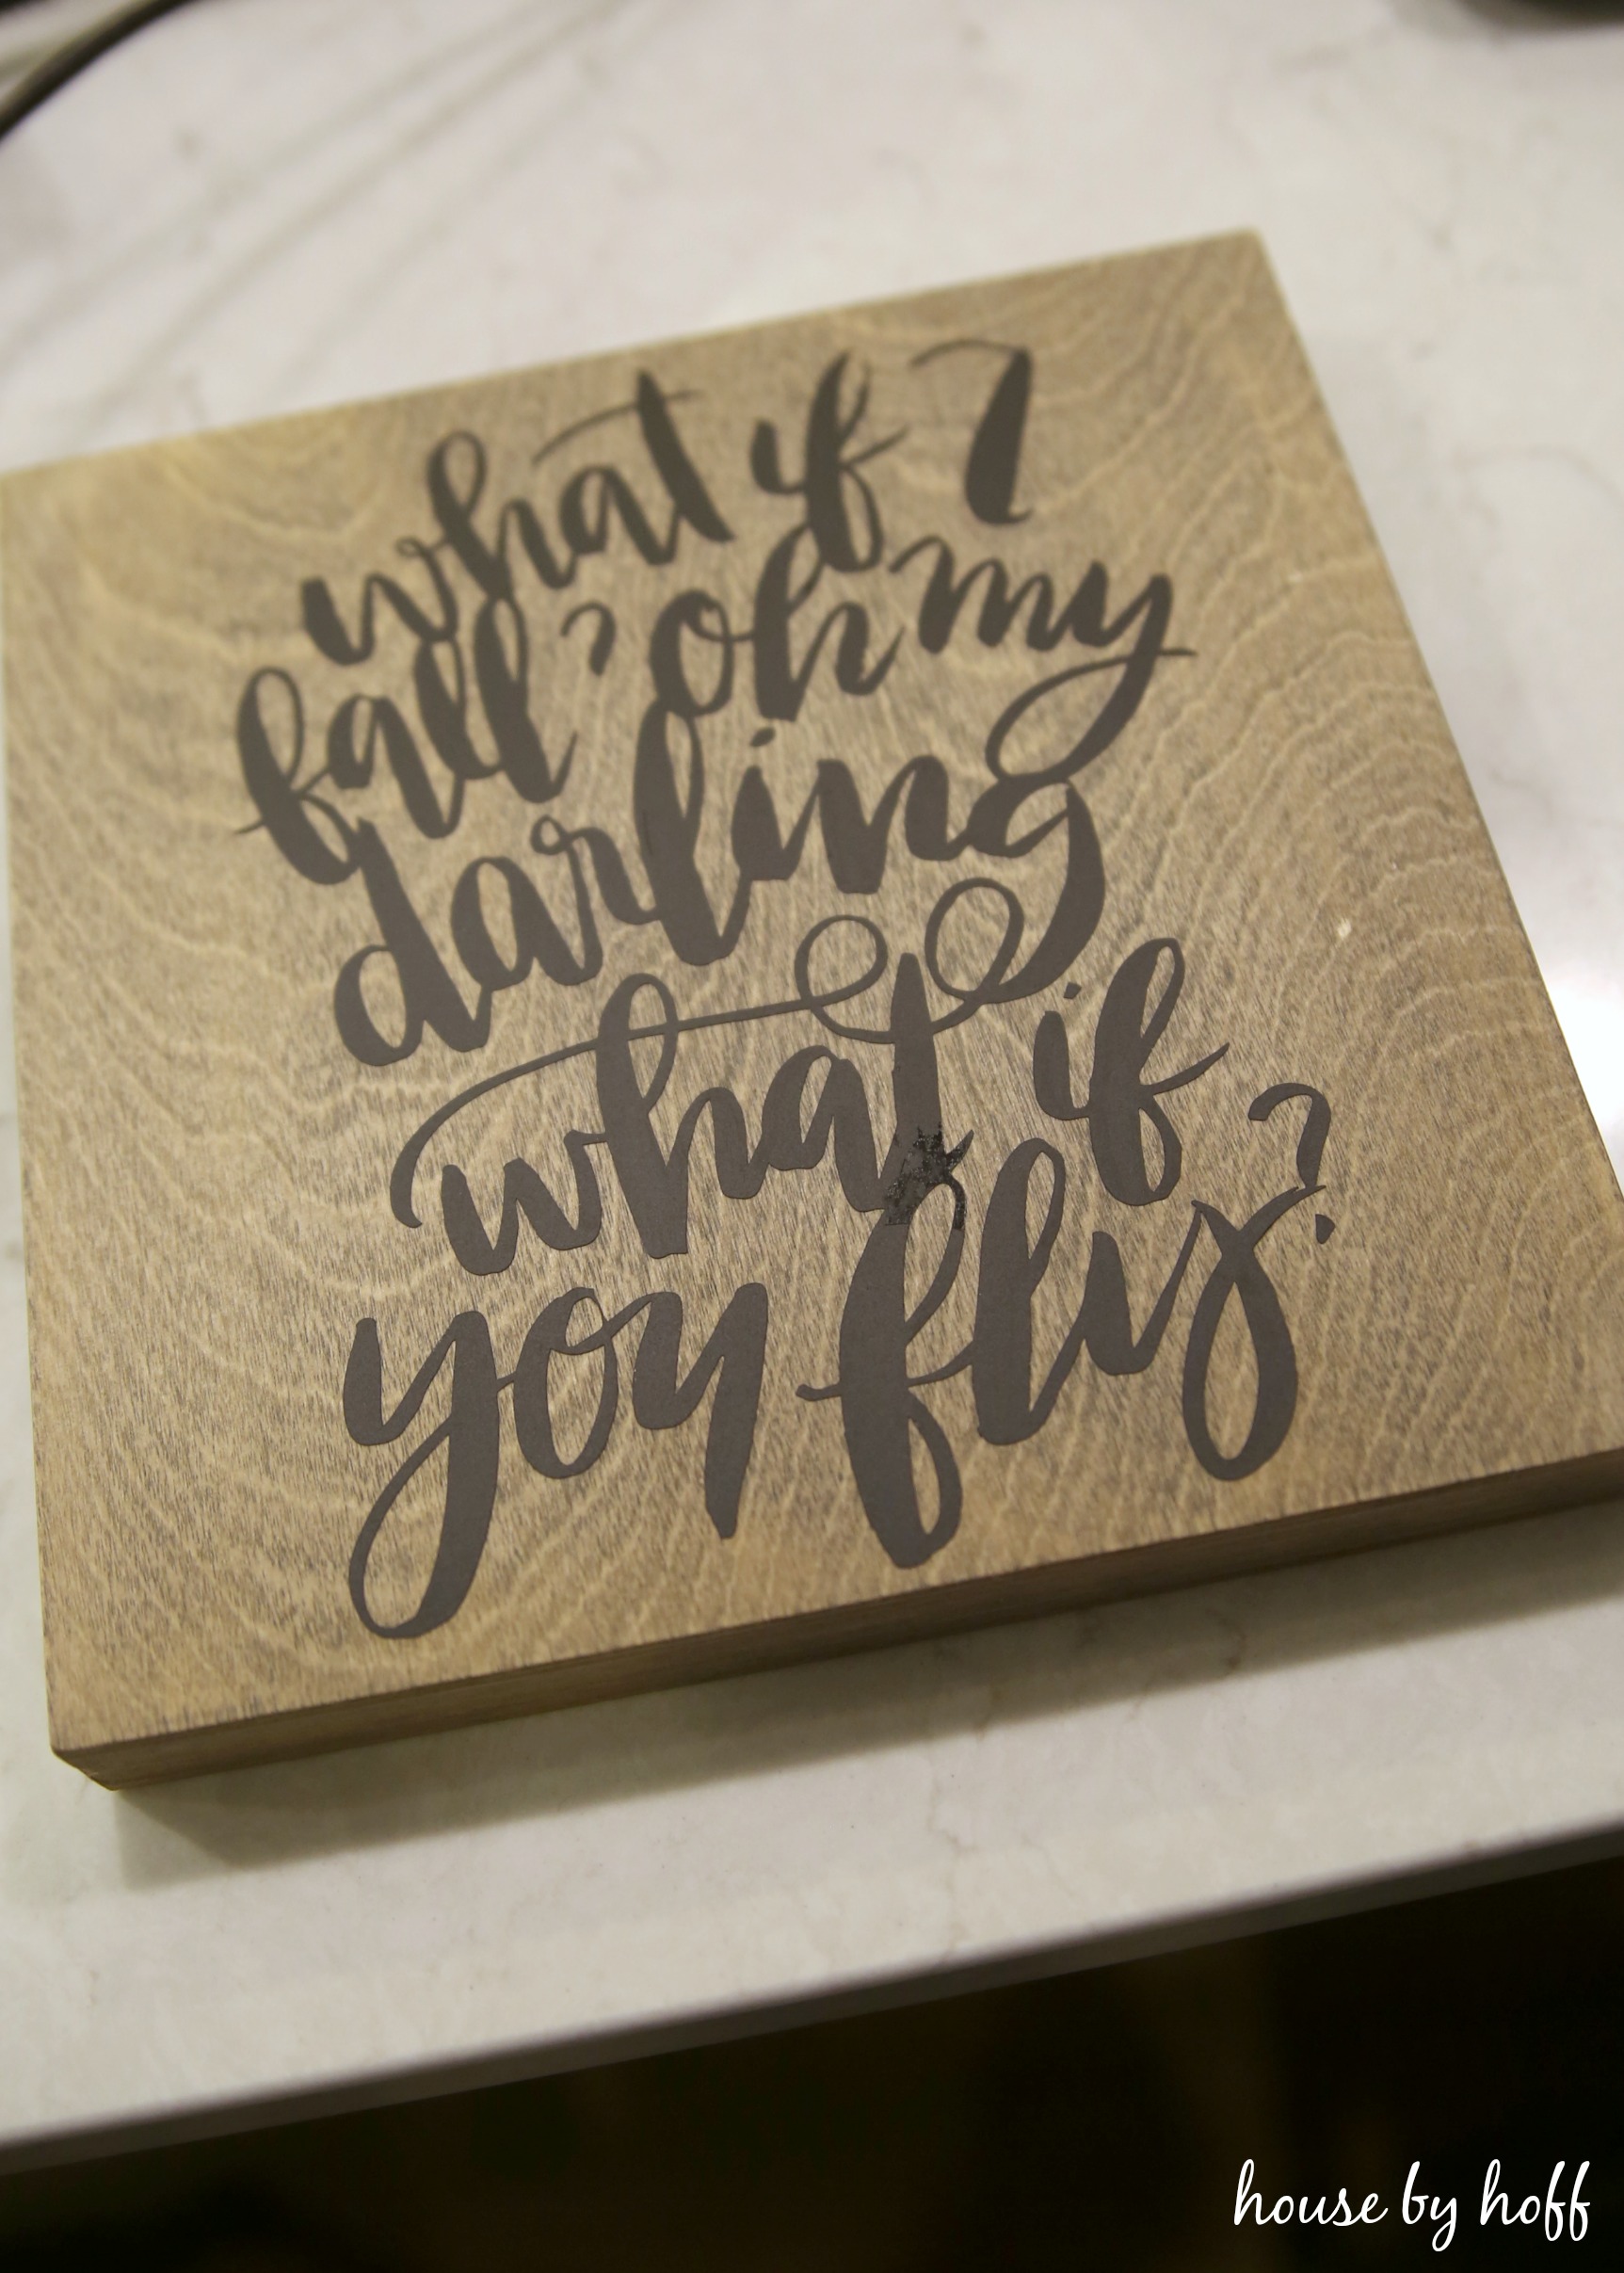 what if I
fall? oh my
darling
what if
you fly?
house by hoff